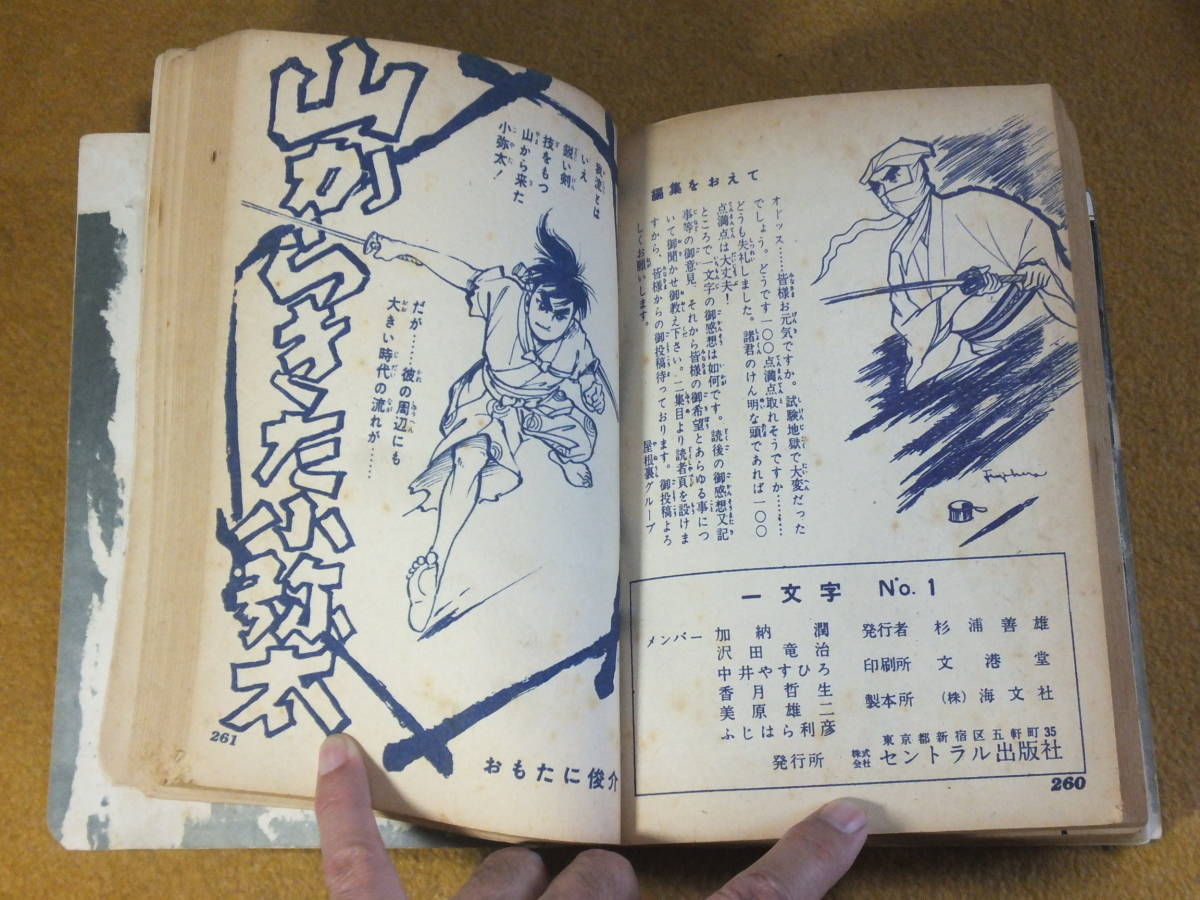 編集をおえて
オドッス……皆様お元気ですか。試験地獄で大変だった
でしょう。どうです一〇〇点満点取れそうですか……
どうも失礼しました。諸君のけん明な頭であれば一〇〇
点満点は大丈夫！
ところで一文字の御感想は如何です。読後の御感想又記
事等の御意見、それから皆様の御希望とあらゆる事につ
いて御聞かせ御教え下さい。二集目より読者頁を設けま
すから、皆様からの御投稿待っております。御投稿よろ
しくお願いします。
屋根裏グループ
一文字 No.1
メンバー 加納潤
沢田竜治
中井やすひろ
香月哲生
美原雄二
ふじはら利彦
発行者 杉浦善雄
印刷所 文港堂
製本所 (株)海文社
東京都新宿区五軒町35
発行所 株式会社 セントラル出版社
260
我流とは
いえ
鋭い剣
技をもつ
山から来た
小弥太！
だが……彼の周辺にも
大きい時代の流れが……
山からきた小弥太
おもたに俊介
261